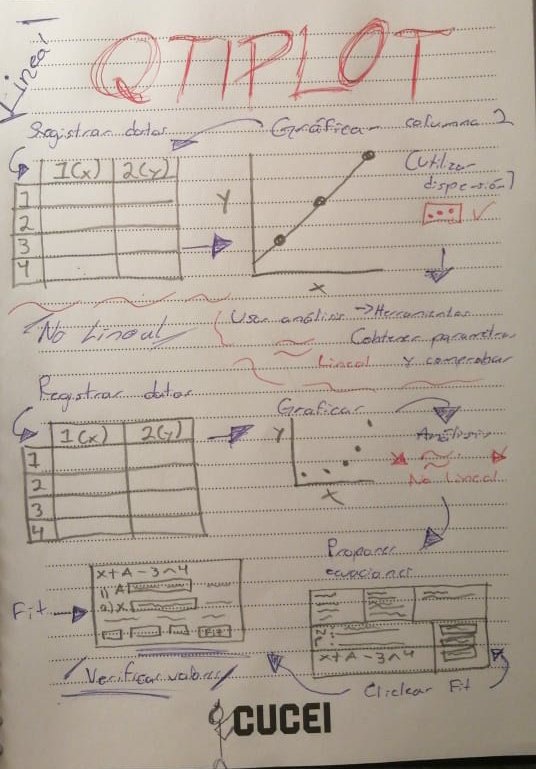 Lineal
QTIPLOT
Registrar datos
Gráficar columna 2
(Utilizar
dispersión)
1(x) 2(y)
1
2
3
4
Y
X
No Lineal
Usar análisis → Herramientas
Lineal
(obtener parametros
y comprobar
Registrar datos
1(x) 2(y)
1
2
3
4
Graficar
Y
X
Análisis
No Lineal
Proponer
ecuaciones
x+A-3^4
Clickear Fit
Fit
x+A-3^4
1) A
2) X
Fit
Verificar valores
CUCEI